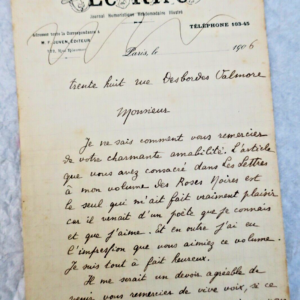 LE RIRE
Journal Humoristique Hebdomadaire Illustré
TÉLÉPHONE 103-45
M. F. JUVEN, ÉDITEUR
Paris, le 1906
trente huit rue Desbordes Valmore
Monsieur
Je ne sais comment vous remercier
de votre charmante amabilité. L'article
que vous avez consacré dans Les Lettres
à mon volume des Roses Noires est
le seul qui m'ait fait vraiment plaisir
car il venait d'un poëte que je connais
et que j'aime. Et en outre j'ai eu
l'impression que vous aimiez ce volume.
Je suis tout à fait heureux.
Il me serait un devoir agréable de
venir vous remercier de vive voix, si ce